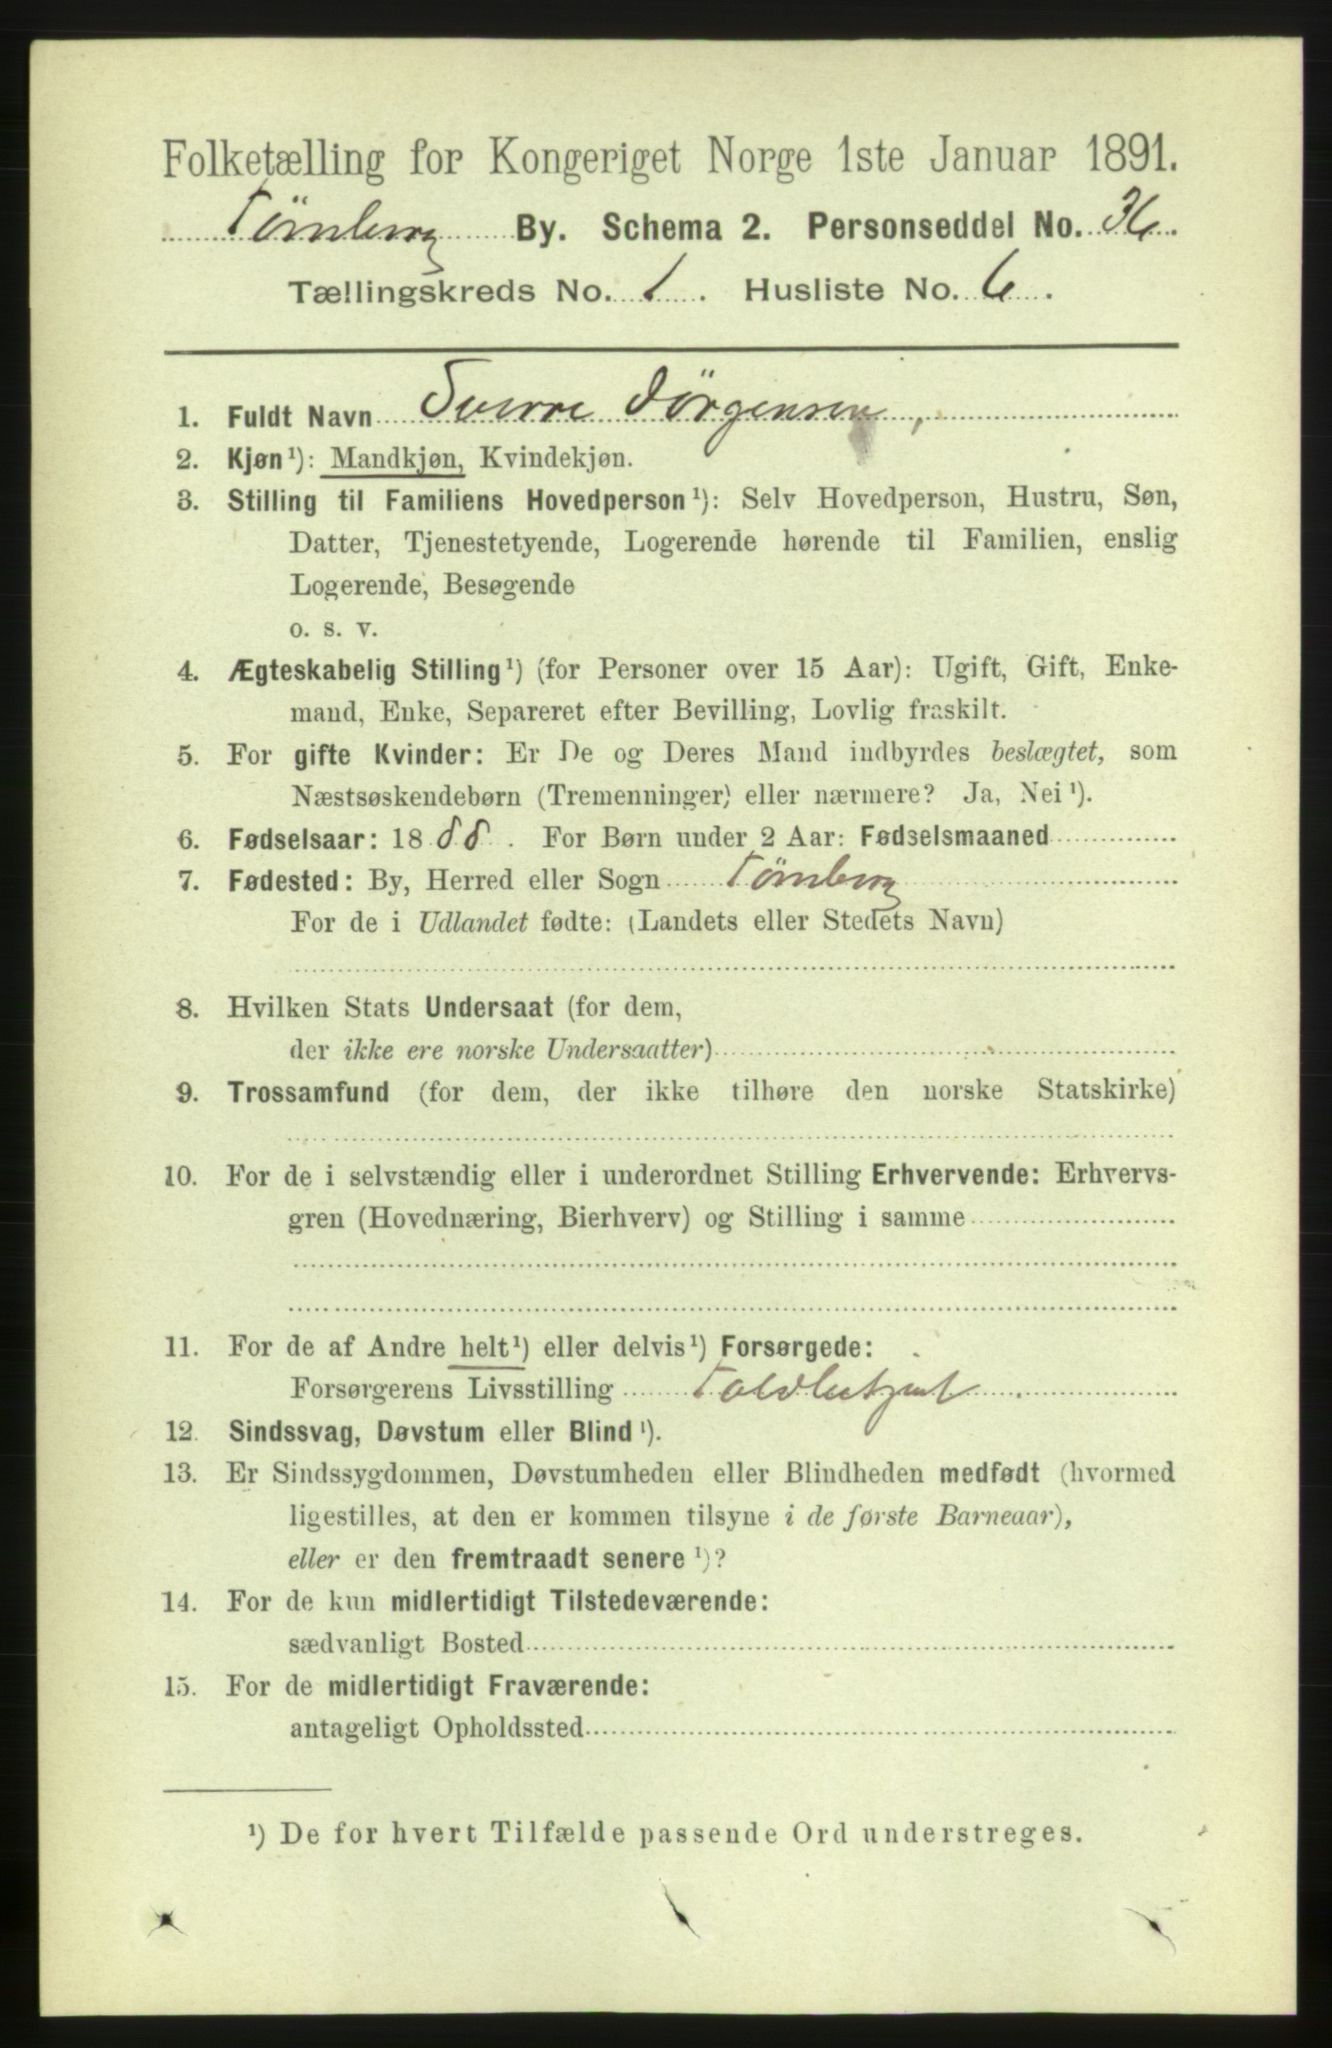 Folketælling for Kongeriget Norge 1ste Januar 1891.
Tönsberg By. Schema 2. Personseddel No. 36.
Tællingskreds No. 1. Husliste No. 6.
1. Fuldt Navn Sverre Jörgensen,
2. Kjøn¹): Mandkjøn, Kvindekjøn.
3. Stilling til Familiens Hovedperson¹): Selv Hovedperson, Hustru, Søn,
Datter, Tjenestetyende, Logerende hørende til Familien, enslig
Logerende, Besøgende
o. s. v.
4. Ægteskabelig Stilling¹) (for Personer over 15 Aar): Ugift, Gift, Enke-
mand, Enke, Separeret efter Bevilling, Lovlig fraskilt.
5. For gifte Kvinder: Er De og Deres Mand indbyrdes beslægtet, som
Næstsøskendebørn (Tremenninger) eller nærmere? Ja, Nei¹).
6. Fødselsaar: 1888. For Børn under 2 Aar: Fødselsmaaned
7. Fødested: By, Herred eller Sogn Tönsberg
For de i Udlandet fødte: (Landets eller Stedets Navn)
8. Hvilken Stats Undersaat (for dem,
der ikke ere norske Undersaatter)
9. Trossamfund (for dem, der ikke tilhøre den norske Statskirke)
10. For de i selvstændig eller i underordnet Stilling Erhvervende: Erhvervs-
gren (Hovednæring, Bierhverv) og Stilling i samme
11. For de af Andre helt¹) eller delvis¹) Forsørgede:
Forsørgerens Livsstilling Toldbetjent
12. Sindssvag, Døvstum eller Blind¹).
13. Er Sindssygdommen, Døvstumheden eller Blindheden medfødt (hvormed
ligestilles, at den er kommen tilsyne i de første Barneaar),
eller er den fremtraadt senere¹)?
14. For de kun midlertidigt Tilstedeværende:
sædvanligt Bosted
15. For de midlertidigt Fraværende:
antageligt Opholdssted
¹) De for hvert Tilfælde passende Ord understreges.